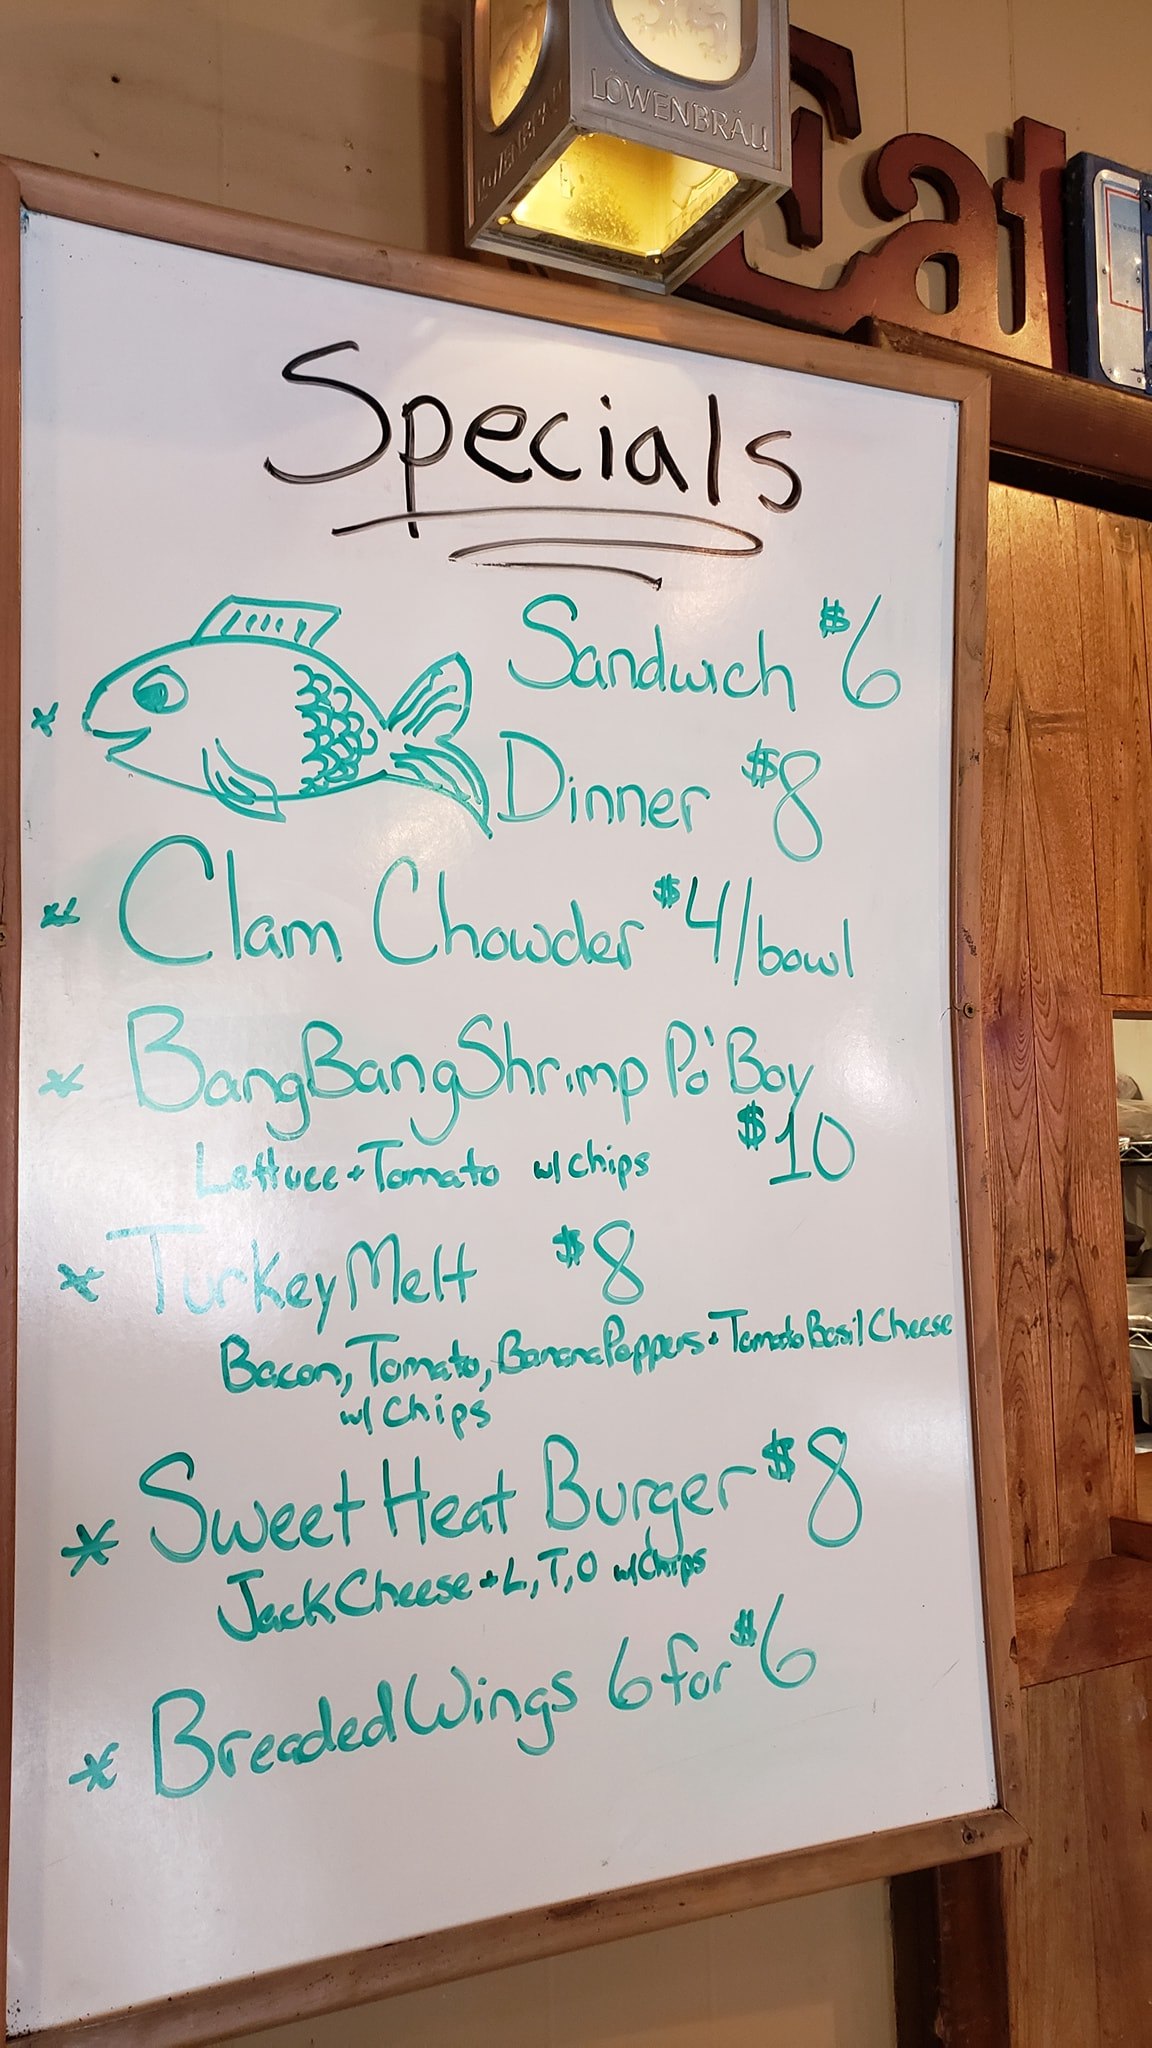 LÖWENBRÄU
Eat
Specials
Sandwich $6
Dinner $8
* Clam Chowder $4/bowl
* Bang Bang Shrimp Po' Boy
$10
Lettuce + Tomato w/ chips
* Turkey Melt $8
Bacon, Tomato, Banana Peppers + Tomato Basil Cheese
w/ Chips
* Sweet Heat Burger $8
Jack Cheese + L, T, O w/ Chips
* Breaded Wings 6 for $6